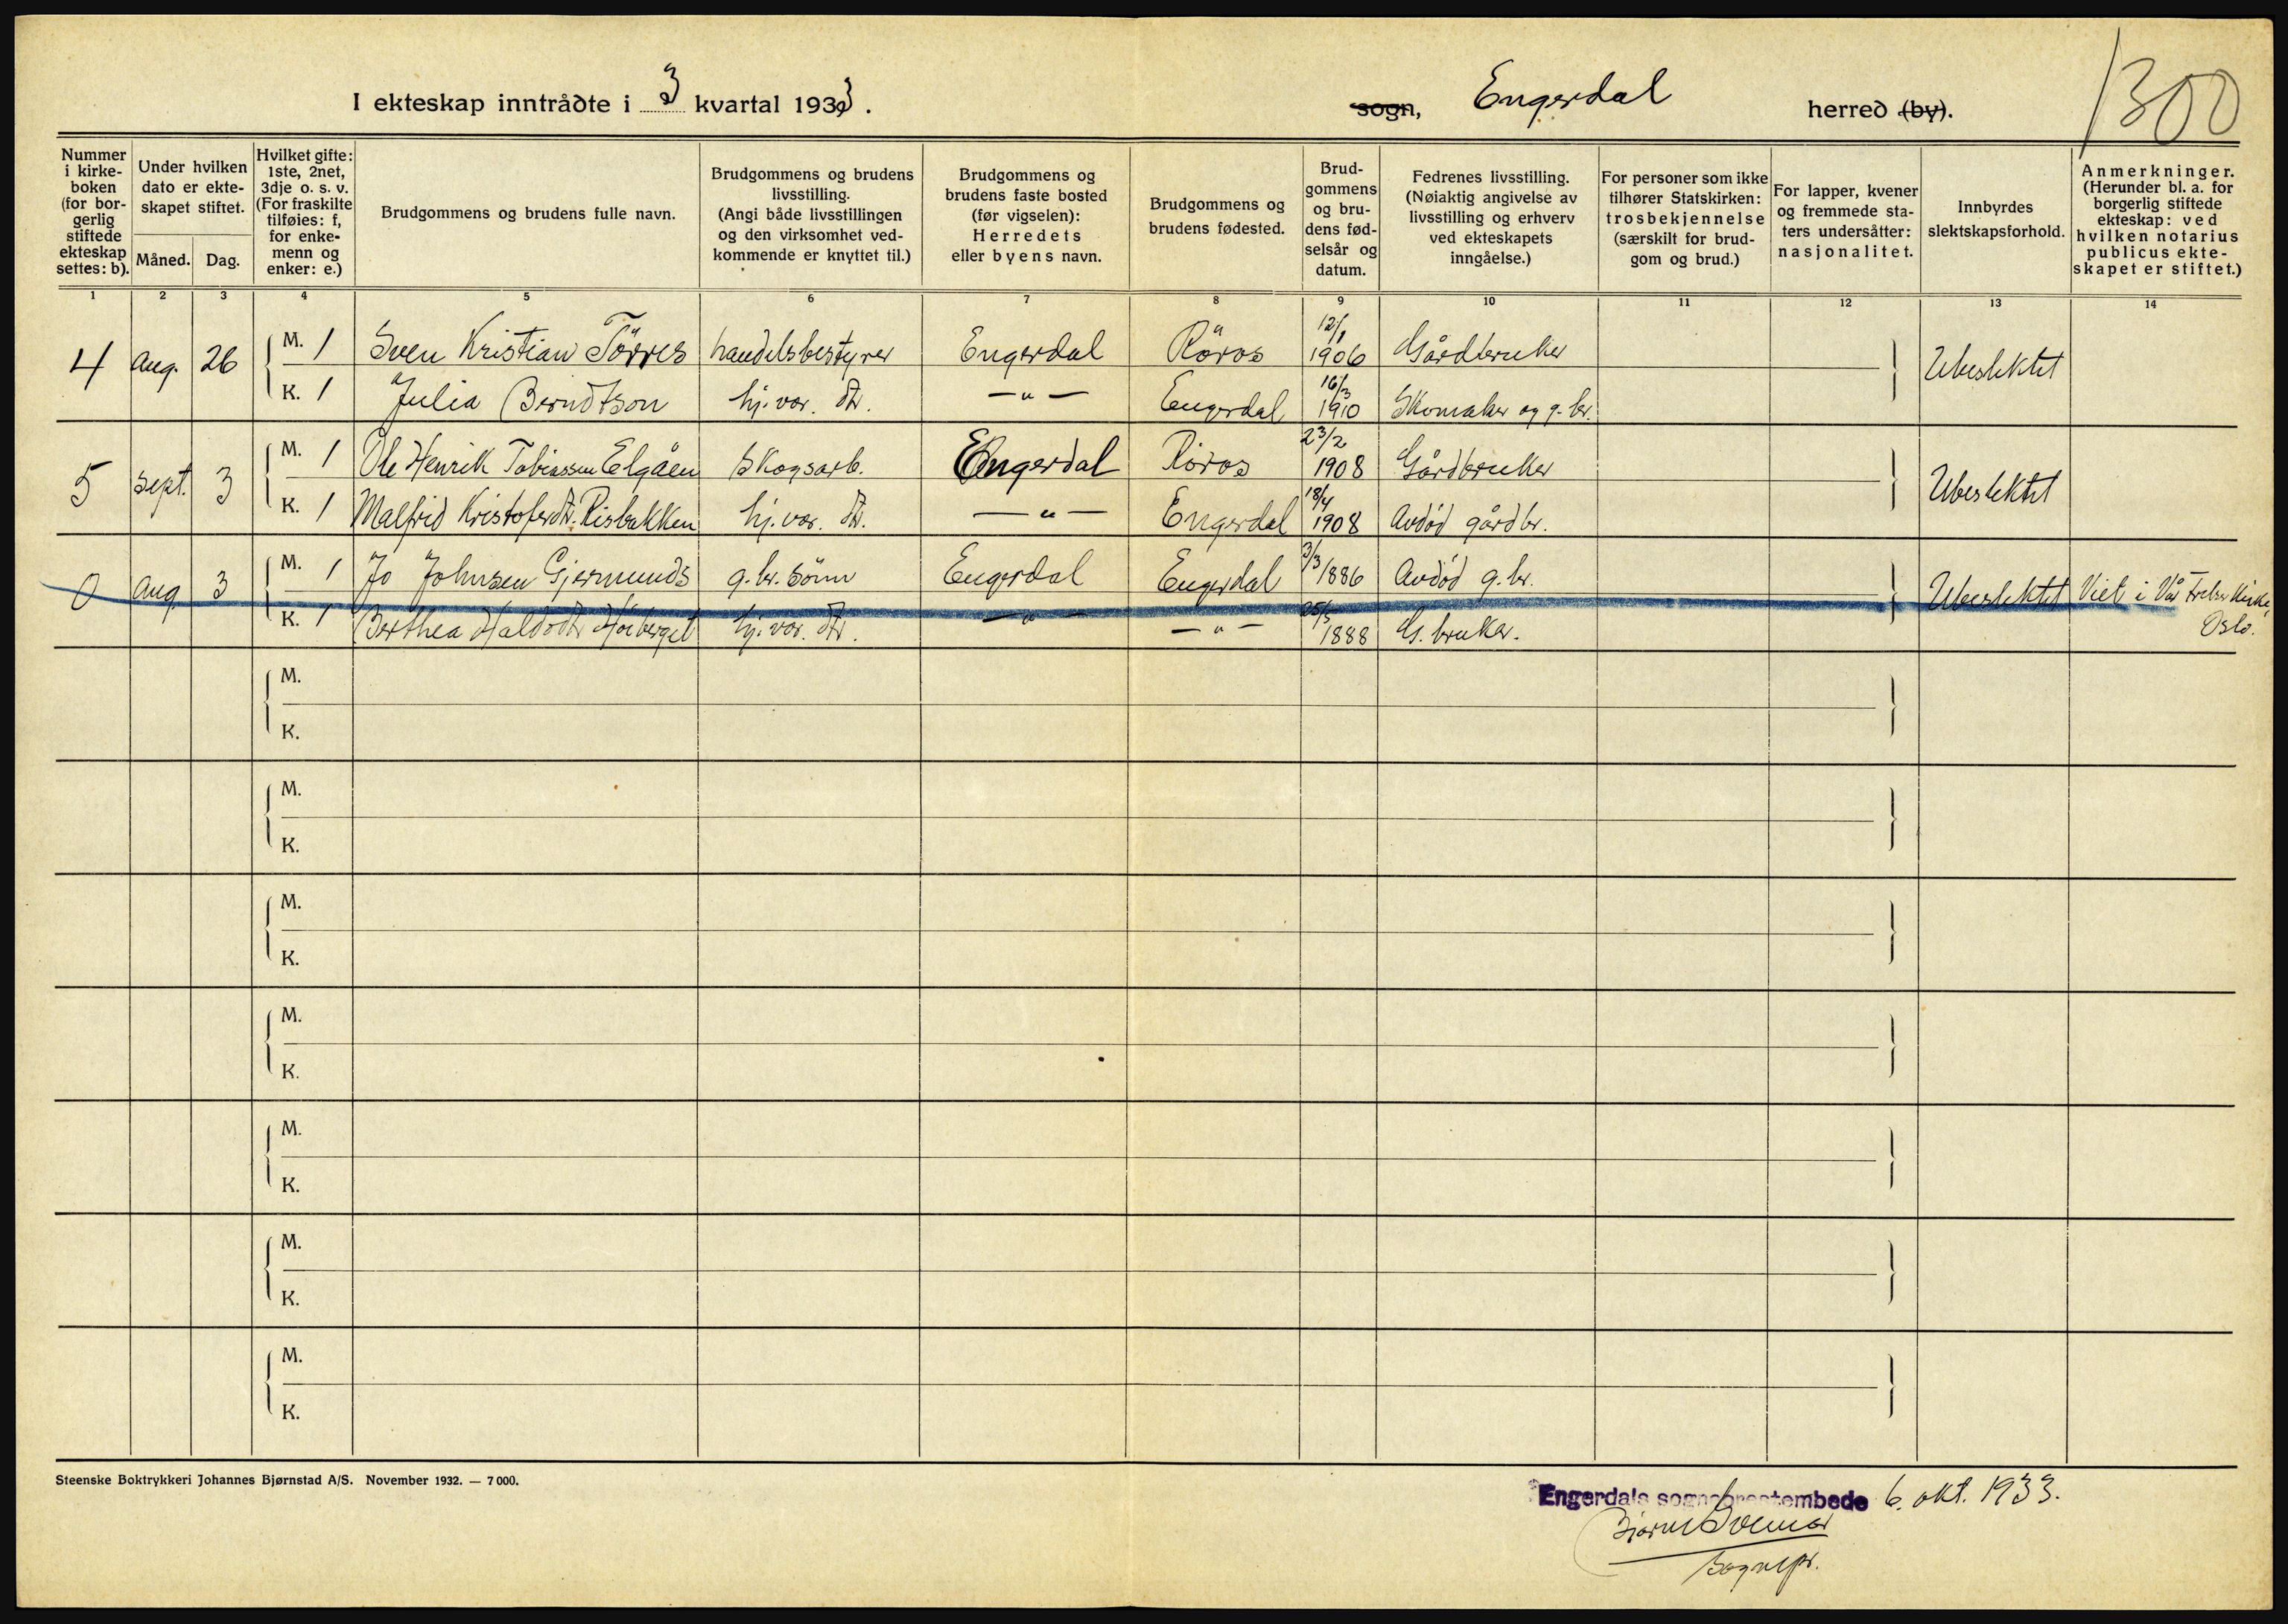 I ekteskap inntrådte i 3 kvartal 1933.
sogn, Engerdal herred (by).
1300
Nummer i kirke-boken (for bor-gerlig stiftede ekteskap settes: b).
Under hvilken dato er ekte-skapet stiftet.
Måned. Dag.
Hvilket gifte: 1ste, 2net, 3dje o. s. v. (For fraskilte tilføies: f, for enke-menn og enker: e.)
Brudgommens og brudens fulle navn.
Brudgommens og brudens livsstilling. (Angi både livsstillingen og den virksomhet ved-kommende er knyttet til.)
Brudgommens og brudens faste bosted (før vigselen): Herredets eller byens navn.
Brudgommens og brudens fødested.
Brud-gommens og bru-dens fød-selsår og datum.
Fedrenes livsstilling. (Nøiaktig angivelse av livsstilling og erhverv ved ekteskapets inngåelse.)
For personer som ikke tilhører Statskirken: trosbekjennelse (særskilt for brud-gom og brud.)
For lapper, kvener og fremmede sta-ters undersåtter: nasjonalitet.
Innbyrdes slektskapsforhold.
Anmerkninger. (Herunder bl. a. for borgerlig stiftede ekteskap: ved hvilken notarius publicus ekte-skapet er stiftet.)
1 2 3 4 5 6 7 8 9 10 11 12 13 14
4 Aug. 26 M. 1 Sven Kristian Törres handelsbestyrer Engerdal Röros 12/1 1906 Gårdbruker Ubeslektet
K. 1 Julia Berndtson hj.vær. dtr. — " — Engerdal 16/3 1910 Skomaker og g.br.
5 sept. 3 M. 1 Ole Henrik Tobiassen Elgåen skogsarb. Engerdal Röros 23/2 1908 Gårdbruker Ubeslektet
K. 1 Malfrid Kristoferdtr. Risbakken hj.vær. dtr. — " — Engerdal 18/4 1908 Avdöd gårdbr.
0 Aug 3 M. 1 Jo Johnsen Gjermunds g.br.sönn Engerdal Engerdal 3/3 1886 Avdöd g.br. Ubeslektet Viet i Vår Frelsers Kirke, Oslo.
K. 1 Berthea Haldodtr Höiberget hj.vær. dtr. — " — — " — 25/5 1888 G.bruker.
M.
K.
M.
K.
M.
K.
M.
K.
M.
K.
M.
K.
M.
K.
Steenske Boktrykkeri Johannes Bjørnstad A/S. November 1932. — 7 000.
Engerdals sogneprestembede 6. okt. 1933.
Sognepr.